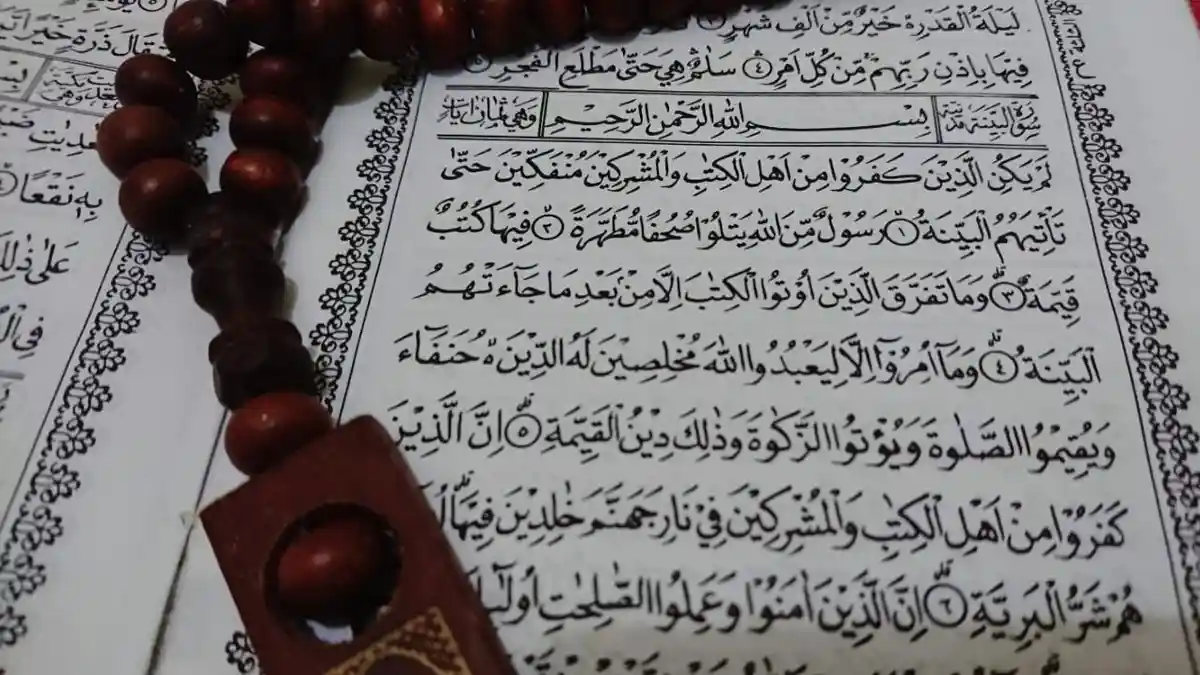 لَيْلَةُ الْقَدْرِ ەۙ خَيْرٌ مِّنْ اَلْفِ شَهْرٍۗ ﴿٣﴾
فِيْهَا بِاِذْنِ رَبِّهِمْۚ مِّنْ كُلِّ اَمْرٍۛ ﴿٤﴾ سَلٰمٌۛ هِيَ حَتّٰى مَطْلَعِ الْفَجْرِ ﴿٥﴾
سُوْرَةُ الْبَيِّنَةِ مَدَنِيَّةٌ بِسْمِ اللّٰهِ الرَّحْمٰنِ الرَّحِيْمِ وَهِيَ ثَمَانُ اٰيَاتٍ
لَمْ يَكُنِ الَّذِيْنَ كَفَرُوْا مِنْ اَهْلِ الْكِتٰبِ وَالْمُشْرِكِيْنَ مُنْفَكِّيْنَ حَتّٰى
تَأْتِيَهُمُ الْبَيِّنَةُۙ ﴿١﴾ رَسُوْلٌ مِّنَ اللّٰهِ يَتْلُوْا صُحُفًا مُّطَهَّرَةًۙ ﴿٢﴾ فِيْهَا كُتُبٌ
قَيِّمَةٌۗ ﴿٣﴾ وَمَا تَفَرَّقَ الَّذِيْنَ اُوْتُوا الْكِتٰبَ اِلَّا مِنْ بَعْدِ مَا جَآءَتْهُمُ
الْبَيِّنَةُۗ ﴿٤﴾ وَمَآ اُمِرُوْٓا اِلَّا لِيَعْبُدُوا اللّٰهَ مُخْلِصِيْنَ لَهُ الدِّيْنَ ەۙ حُنَفَآءَ
وَيُقِيْمُوا الصَّلٰوةَ وَيُؤْتُوا الزَّكٰوةَ وَذٰلِكَ دِيْنُ الْقَيِّمَةِۗ ﴿٥﴾ اِنَّ الَّذِيْنَ
كَفَرُوْا مِنْ اَهْلِ الْكِتٰبِ وَالْمُشْرِكِيْنَ فِيْ نَارِ جَهَنَّمَ خٰلِدِيْنَ فِيْهَاۗ
هُمْ شَرُّ الْبَرِيَّةِۗ ﴿٦﴾ اِنَّ الَّذِيْنَ اٰمَنُوْا وَعَمِلُوا الصّٰلِحٰتِ
ذَرَّةٍ خَيْرًا
بِهٖ نَقْعًا
عَلٰى ذٰلِكَ